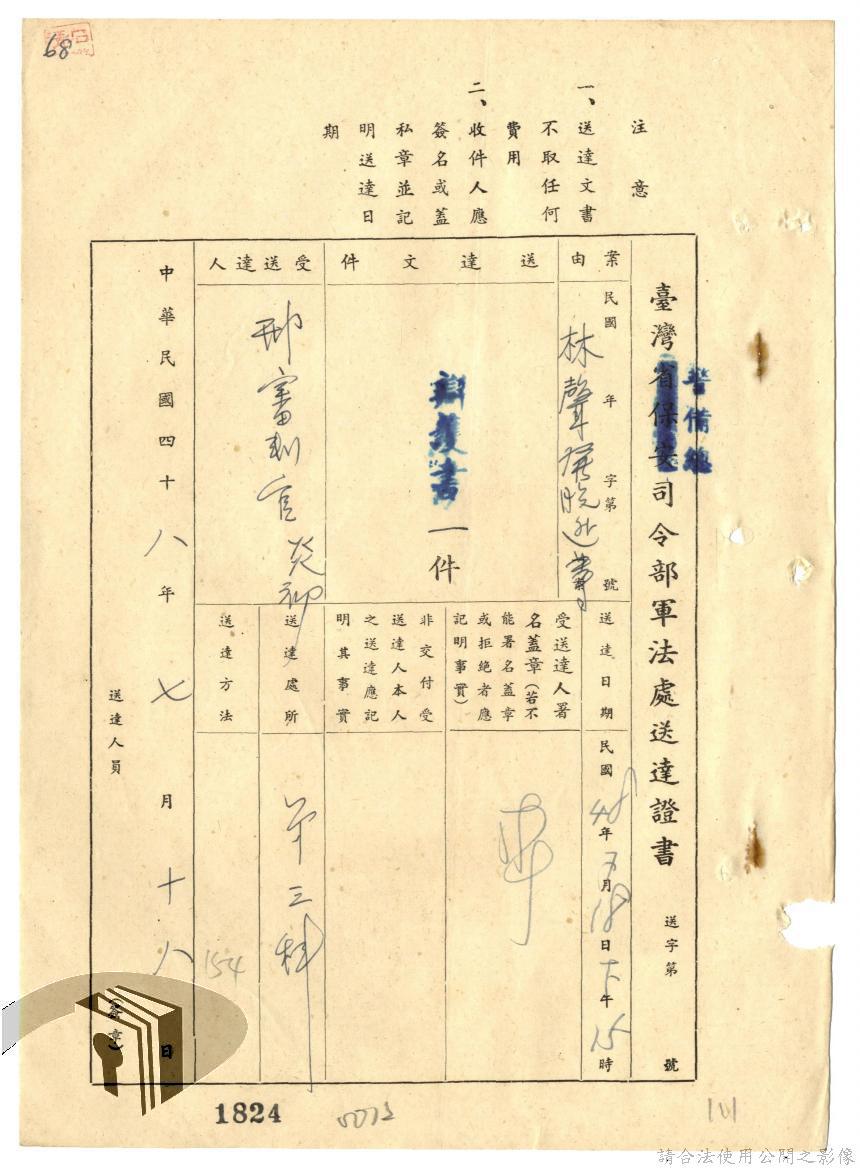 68
注意
一、送達文書
不取任何
費用
二、收件人應
簽名或蓋
私章並記
明送達日
期
臺灣省保安司令部軍法處送達證書
警備總
送字第 號
案由
民國 年 字第 號
林聲發脫逃等
送達文件
辯護書一件
受送達人
邢審判官炎初
送達日期
民國48年7月18日下午15時
受送達人署
名蓋章(若不
能署名蓋章
或拒絕者應
記明事實)
非交付受
送達人本人
之送達應記
明其事實
送達處所
第三科
送達方法
154
中華民國四十八年七月十八日
送達人員 (簽章)
1824
101
請合法使用公開之影像